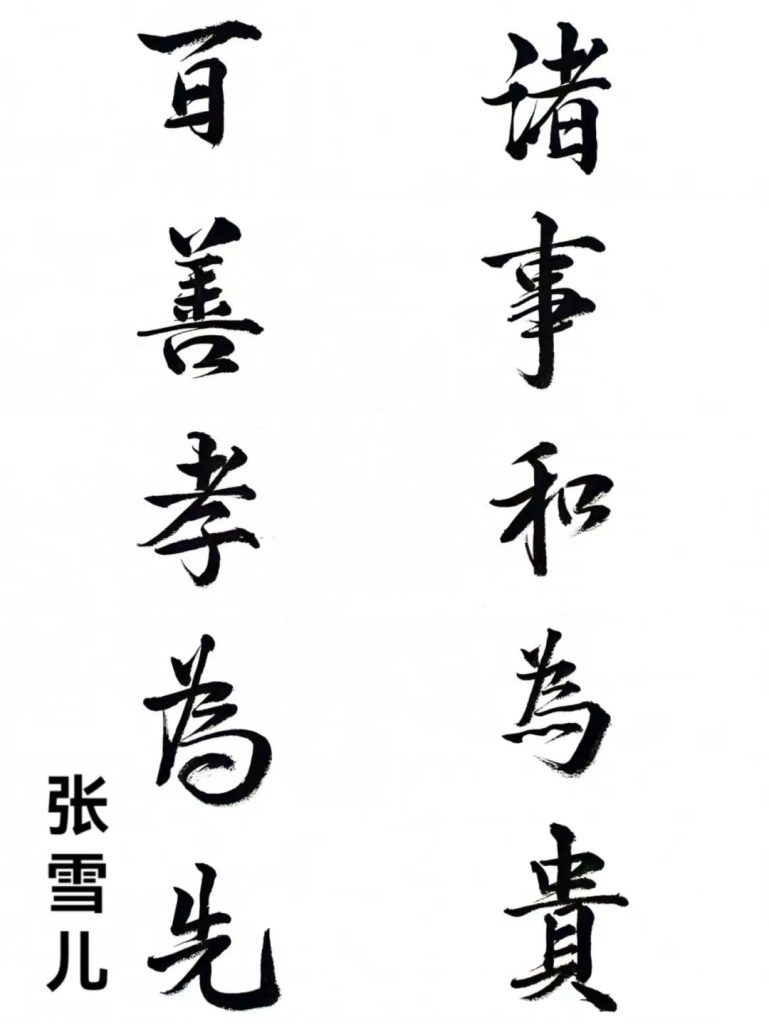 诸事和為貴
百善孝為先
张雪儿